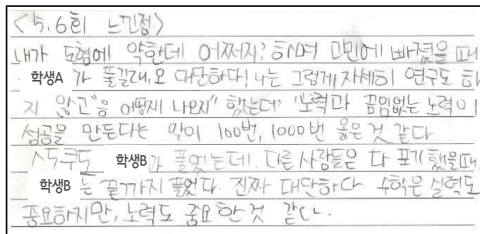 <5.6회 느낀점>
내가 도형에 약한데 어쩌지? 하며 고민에 빠졌을 때
학생A 가 풀길래, 오 대단하다! 나는 그렇게 자세히 연구도 하
지 않고 "음 어떻게 나오지" 했는데 "노력과 끊임없는 노력이
성공을 만든다는 말이 100번, 1000번 옳은 것 같다
스도쿠도 학생B 가 풀었는데. 다른 사람들은 다 포기했을때,
학생B 는 끝까지 풀었다. 진짜 대단하다 수학은 실력도
중요하지만, 노력도 중요한 것 같다.